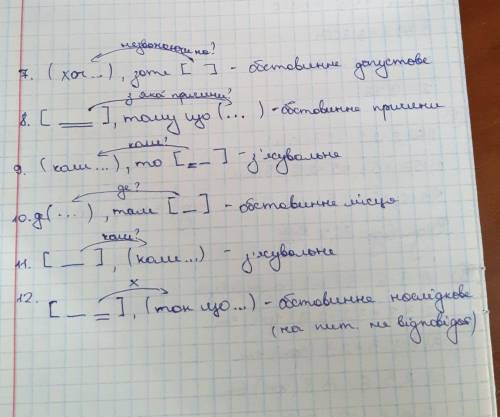 незважаючи на?
7. (хоч...), зате [ ] - обставинне допустове
з якої причини?
8. [ ═ ], тому що (...) - обставинне причини
коли?
9. (коли...), то [ = _ ] - з'ясувальне
де?
10. де(...), там [ _ ] - обставинне місця
коли?
11. [ _ ], (коли...) - з'ясувальне
х
12. [ _ = ], (так що...) - обставинне наслідкове
(на пит. не відповідає)